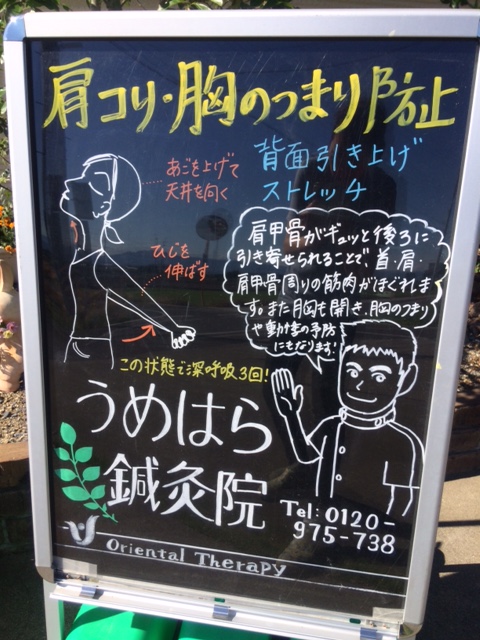 肩コリ・胸のつまり防止
背面引き上げ
ストレッチ
あごを上げて
天井を向く
ひじを
伸ばす
肩甲骨がギュッと後ろに
引き寄せられることで首・肩・
肩甲骨周りの筋肉がほぐれま
す。また胸も開き、胸のつまり
や動悸の予防
にもなります!
この状態で深呼吸3回!
うめはら
鍼灸院
Tel:0120-
975-738
Oriental Therapy